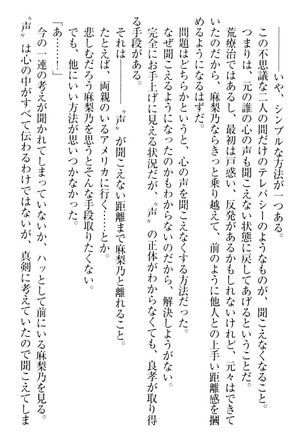 ――いや、シンプルな方法が一つある。
この不思議な二人の間だけのテレパシーのようなものが、聞こえなくなること。
つまりは、元の誰の心の声も聞こえない状態に戻してあげるということだ。
荒療治ではあるし、最初は戸惑い、反発があるかもしれないけれど、元々はできて
いたのだから、麻梨乃ならきっと乗り越えて、前のように他人との上手い距離感を掴
めるようになるはずだ。
問題はどちらかというと、心の声を聞こえなくする方法だった。
なぜ聞こえるようになったのかもわからないのだから、解決しようがない。
完全にお手上げに見える状況だが、〝声〟の正体がわからなくても、良孝が取り得
る手段がある。
それは――〝声〟が聞こえない距離まで麻梨乃と離れること。
たとえば、両親のいるアメリカに行く……とか。
悲しむだろう麻梨乃を思うとそんな手段取りたくない。
でも、他にいい方法が思いつかなかった。
「あ……！」
今の一連の考えが聞かれてしまっていないか、ハッとして前にいる麻梨乃を見る。
〝声〟は心の中がすべて伝わるわけではないが、真剣に考えていたので聞こえてしま